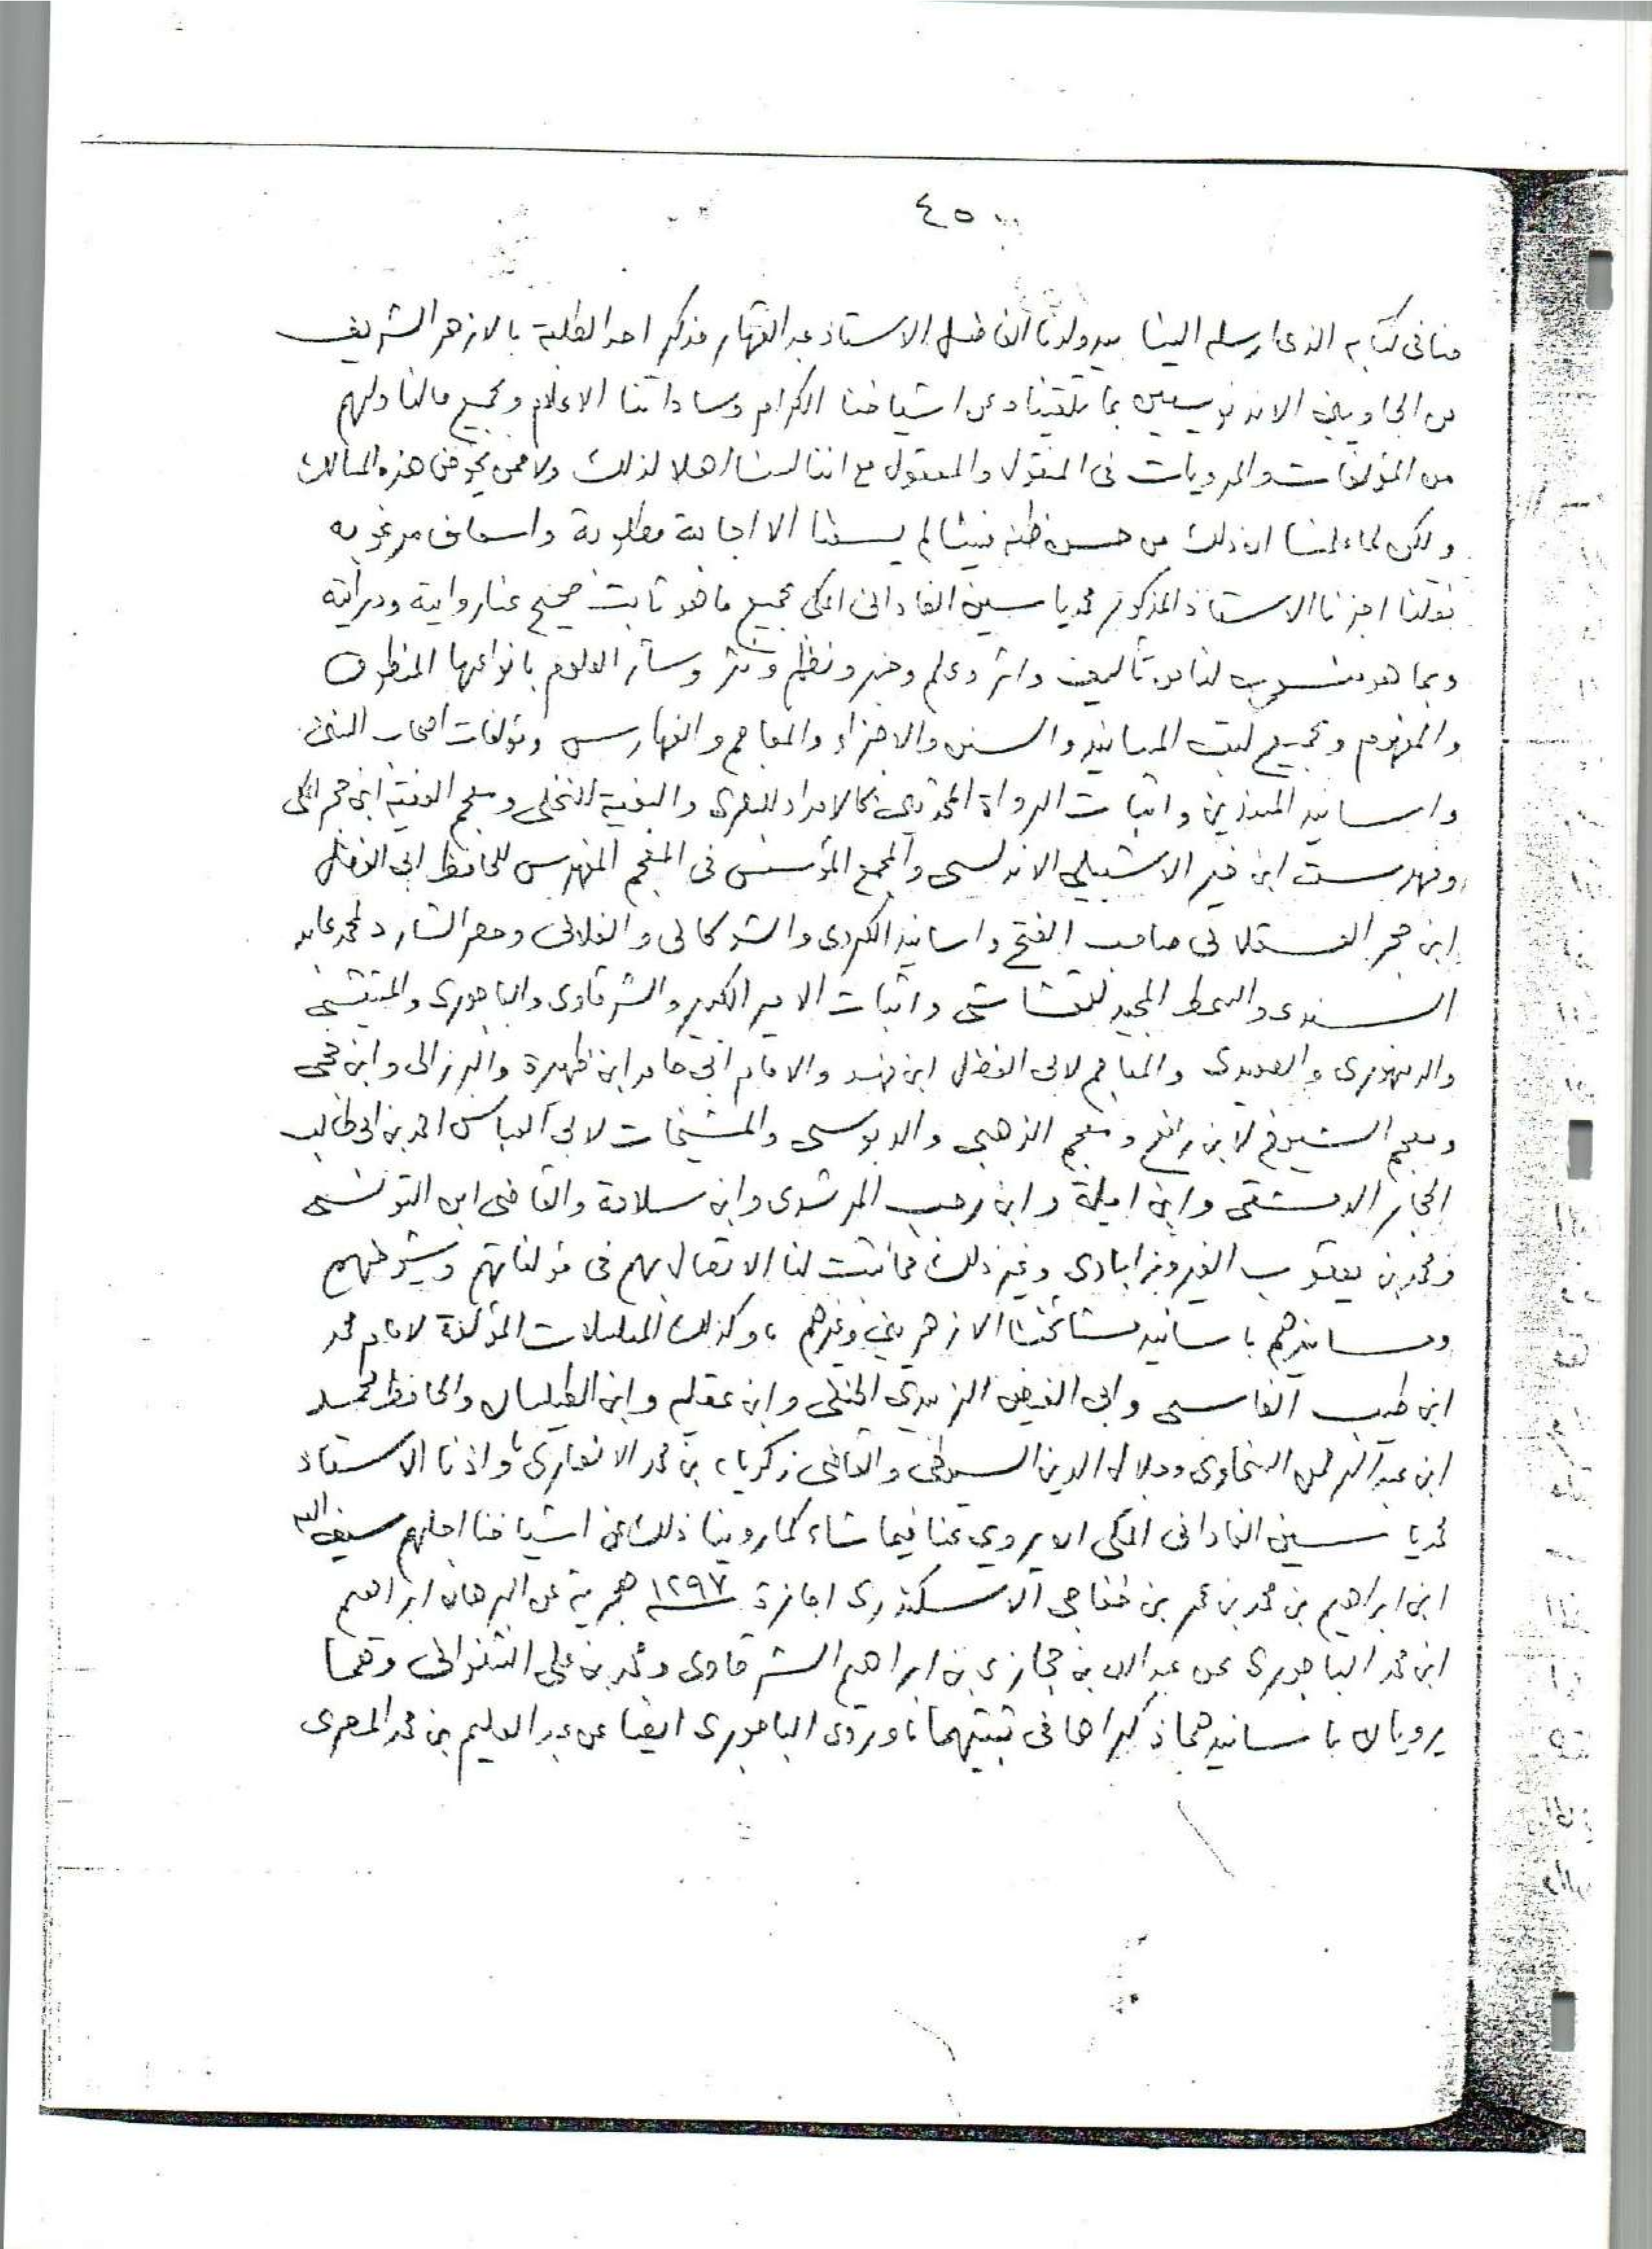 ٤٥
منا فى كتابه الذى ارسله الينا بيد ولدنا الفاضل الاستاذ عبد القهار مذكر احد الطلبة بالازهر الشريف
من الجاويين الاندنوسيين بما تلقيناه عن اشياخنا الكرام وساداتنا الاعلام وبجميع مالنا ولهم
من المؤلفات والمرويات فى المنقول والمعقول مع اننا لسنا اهلا لذلك ولا ممن يخوض هذه المسالك
ولكن لما علمنا ان ذلك من حسن ظنه فينا لم يسعنا الا اجابة مطلوبه واسعاف مرغوبه
فقلنا اجزنا الاستاذ المذكور محمد ياسين الفادانى المكى بجميع ما هو ثابت صحيح عنا رواية ودراية
وبما هو منسوب لنا من تأليف واثر وعلم وخبر ونظم ونثر وسائر العلوم بانواعها المنطوق
والمفهوم وبجميع كتب المسانيد والسنن والاجزاء والمعاجم والفهارس ومؤلفات اصحاب الفنى
واسانيد المبتدين واثبات الرواة المحدثين كالامداد للبصرى والبغية للنخلى ومعجم الفقيه ابن حجر المكى
وفهرست ابن خير الاشبيلى الاندلسى والمجمع المؤسس فى المعجم المفهرس للحافظ ابى الفضل
ابن حجر العسقلانى صاحب الفتح واسانيد الكردى والشوكانى والفلانى وحصر الشارد لمحمد عابد
السندى والسمط المجيد للقشاشى واثبات الامير الكبير والشرقاوى والباجورى
والدمنهورى والمعاجم لابى الفضل ابن فهد والامام ابى حامد ابن ظهيرة والبرزالى وابن حجى
ومعجم الشيوخ لابن رافع ومعجم الذهبى والدبوسى والمشيخات لابى العباس احمد بن ابى طالب
الحجار الدمشقى وابن اميلة وابن رجب المرشدى وابن سلامة والقاضى ابن التونسى
ومحمد بن يعقوب الفيروزابادى وغير ذلك مما ثبت لنا الاتصال بهم فى مؤلفاتهم وشيوخهم
ومسانيدهم باسانيد مشائخنا الازهريين وغيرهم ، وكذلك المسلسلات المؤلفة لامام محمد
ابن طيب الفاسى وابى الفيض الزبيدى الحنفى وابن عقيلة وابن الطيلسان والحافظ محمد
ابن عبد الرحمن السخاوى وجلال الدين السيوطى والقاضى زكرياء بن محمد الانصارى واذنا الاستاذ
محمد ياسين الفادانى المكى ان يروي عنا فيما شاء كما روينا ذلك عن اشياخنا اجلهم سيف الله
ابن ابراهيم بن محمد بن عمر بن خفاجى الاسكندرى اجازة ١٢٩٧ هجرية عن البرهان ابراهيم
ابن محمد الباجورى عن عبد الله بن حجازى بن ابراهيم الشرقاوى ومحمد بن على الشنوانى وهما
يرويان باسانيدهما ذكراها فى ثبتيهما ، وروى الباجورى ايضا عن عبد العليم بن محمد المصرى